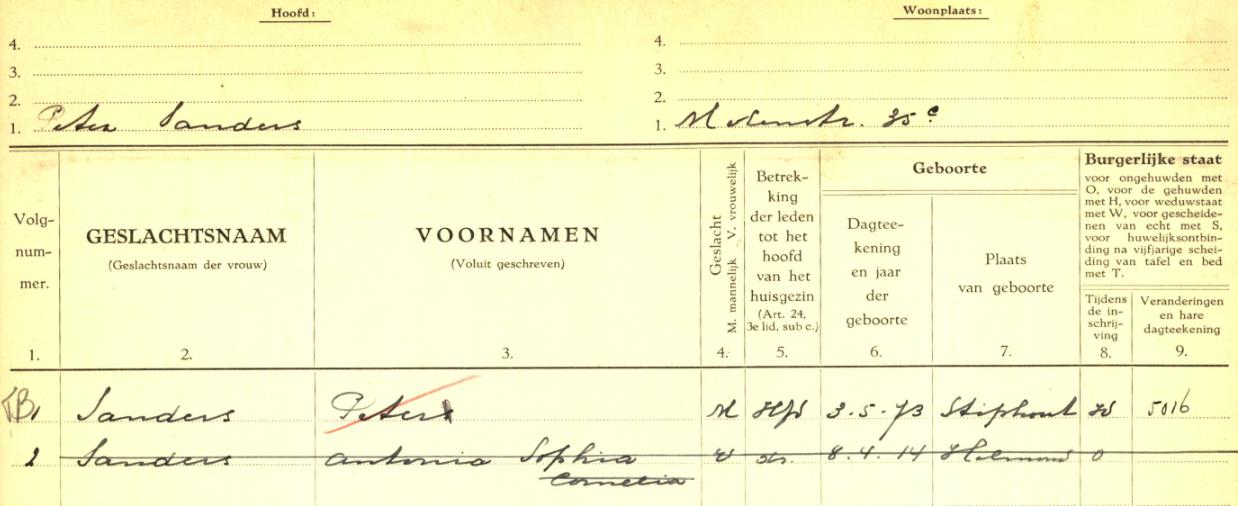 Hoofd: Woonplaats:
4. 4.
3. 3.
2. 2.
1. Peter Sanders 1. Molenstr. 35 c
Volg-
num-
mer.
1.
GESLACHTSNAAM
(Geslachtsnaam der vrouw)
2.
VOORNAMEN
(Voluit geschreven)
3.
Geslacht
M. mannelijk V. vrouwelijk
4.
Betrek-
king
der leden
tot het
hoofd
van het
huisgezin
(Art. 24,
3e lid, sub c.)
5.
Geboorte
Dagtee-
kening
en jaar
der
geboorte
6.
Plaats
van geboorte
7.
Burgerlijke staat
voor ongehuwden met
O, voor de gehuwden
met H, voor weduwstaat
met W, voor gescheide-
nen van echt met S,
voor huwelijksontbin-
ding na vijfjarige schei-
ding van tafel en bed
met T.
Tijdens
de in-
schrij-
ving
8.
Veranderingen
en hare
dagteekening
9.
TB 1 Sanders Peter M Hfd 3.5.73 Stiphout W 5016
2 Sanders Antonia Sophia V dr. 8.4.14 Helmond O
Cornelia